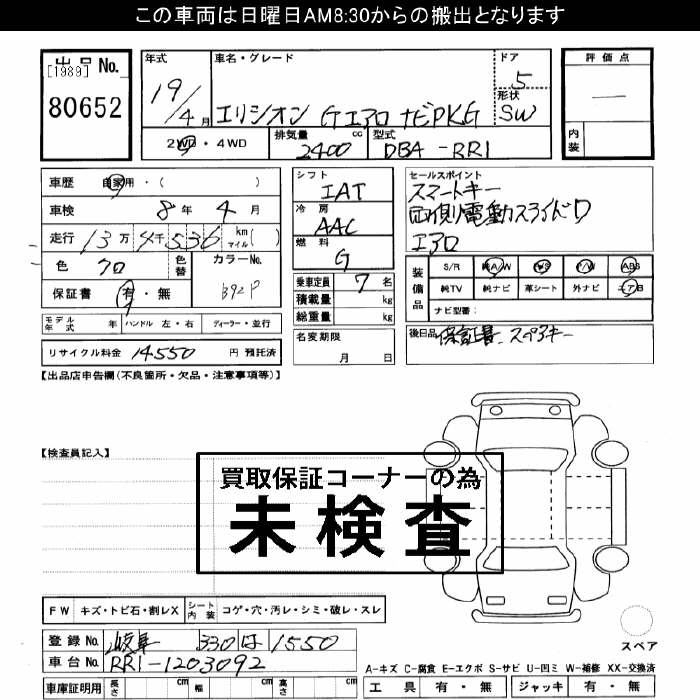 この車両は日曜日AM8:30からの搬出となります
出品 No.
[1989]
80652
年式
19/4月
車名・グレード
エリシオン Gエアロ ナビPKG
ドア
5
形状
SW
評価点
―
内装
2WD・4WD
排気量 cc
2400
型式
DBA-RR1
車歴 自家用・( )
車検 8年 4月
走行 13万 4千536 km マイル( )
色 クロ
色替
カラーNo.
B92P
保証書 有・無
モデル年式 年 ハンドル 左・右 ディーラー・並行
リサイクル料金 14550 円 預託済
シフト
IAT
冷房
AAC
燃料
G
乗車定員 7名
積載量 kg
総重量 kg
名変期限
月 日
セールスポイント
スマートキー
両側電動スライドD
エアロ
装備品
S/R 純A/W P/S P/W ABS
純TV 純ナビ 革シート 外ナビ エアB
ナビ型番:
後日品 保証書、スペアキー
【出品店申告欄(不良箇所・欠品・注意事項等)】
【検査員記入】
買取保証コーナーの為
未検査
FW キズ・トビ石・割レX シート内装 コゲ・穴・汚レ・シミ・破レ・スレ
登録No. 岐阜 330 ほ 1550
車台No. RR1-1203092
車庫証明用 長さ cm 幅 cm 高さ cm
スペア
A-キズ C-腐食 E-エクボ S-サビ U-凹ミ W-補修 XX-交換済
工具 有・無 ジャッキ 有・無